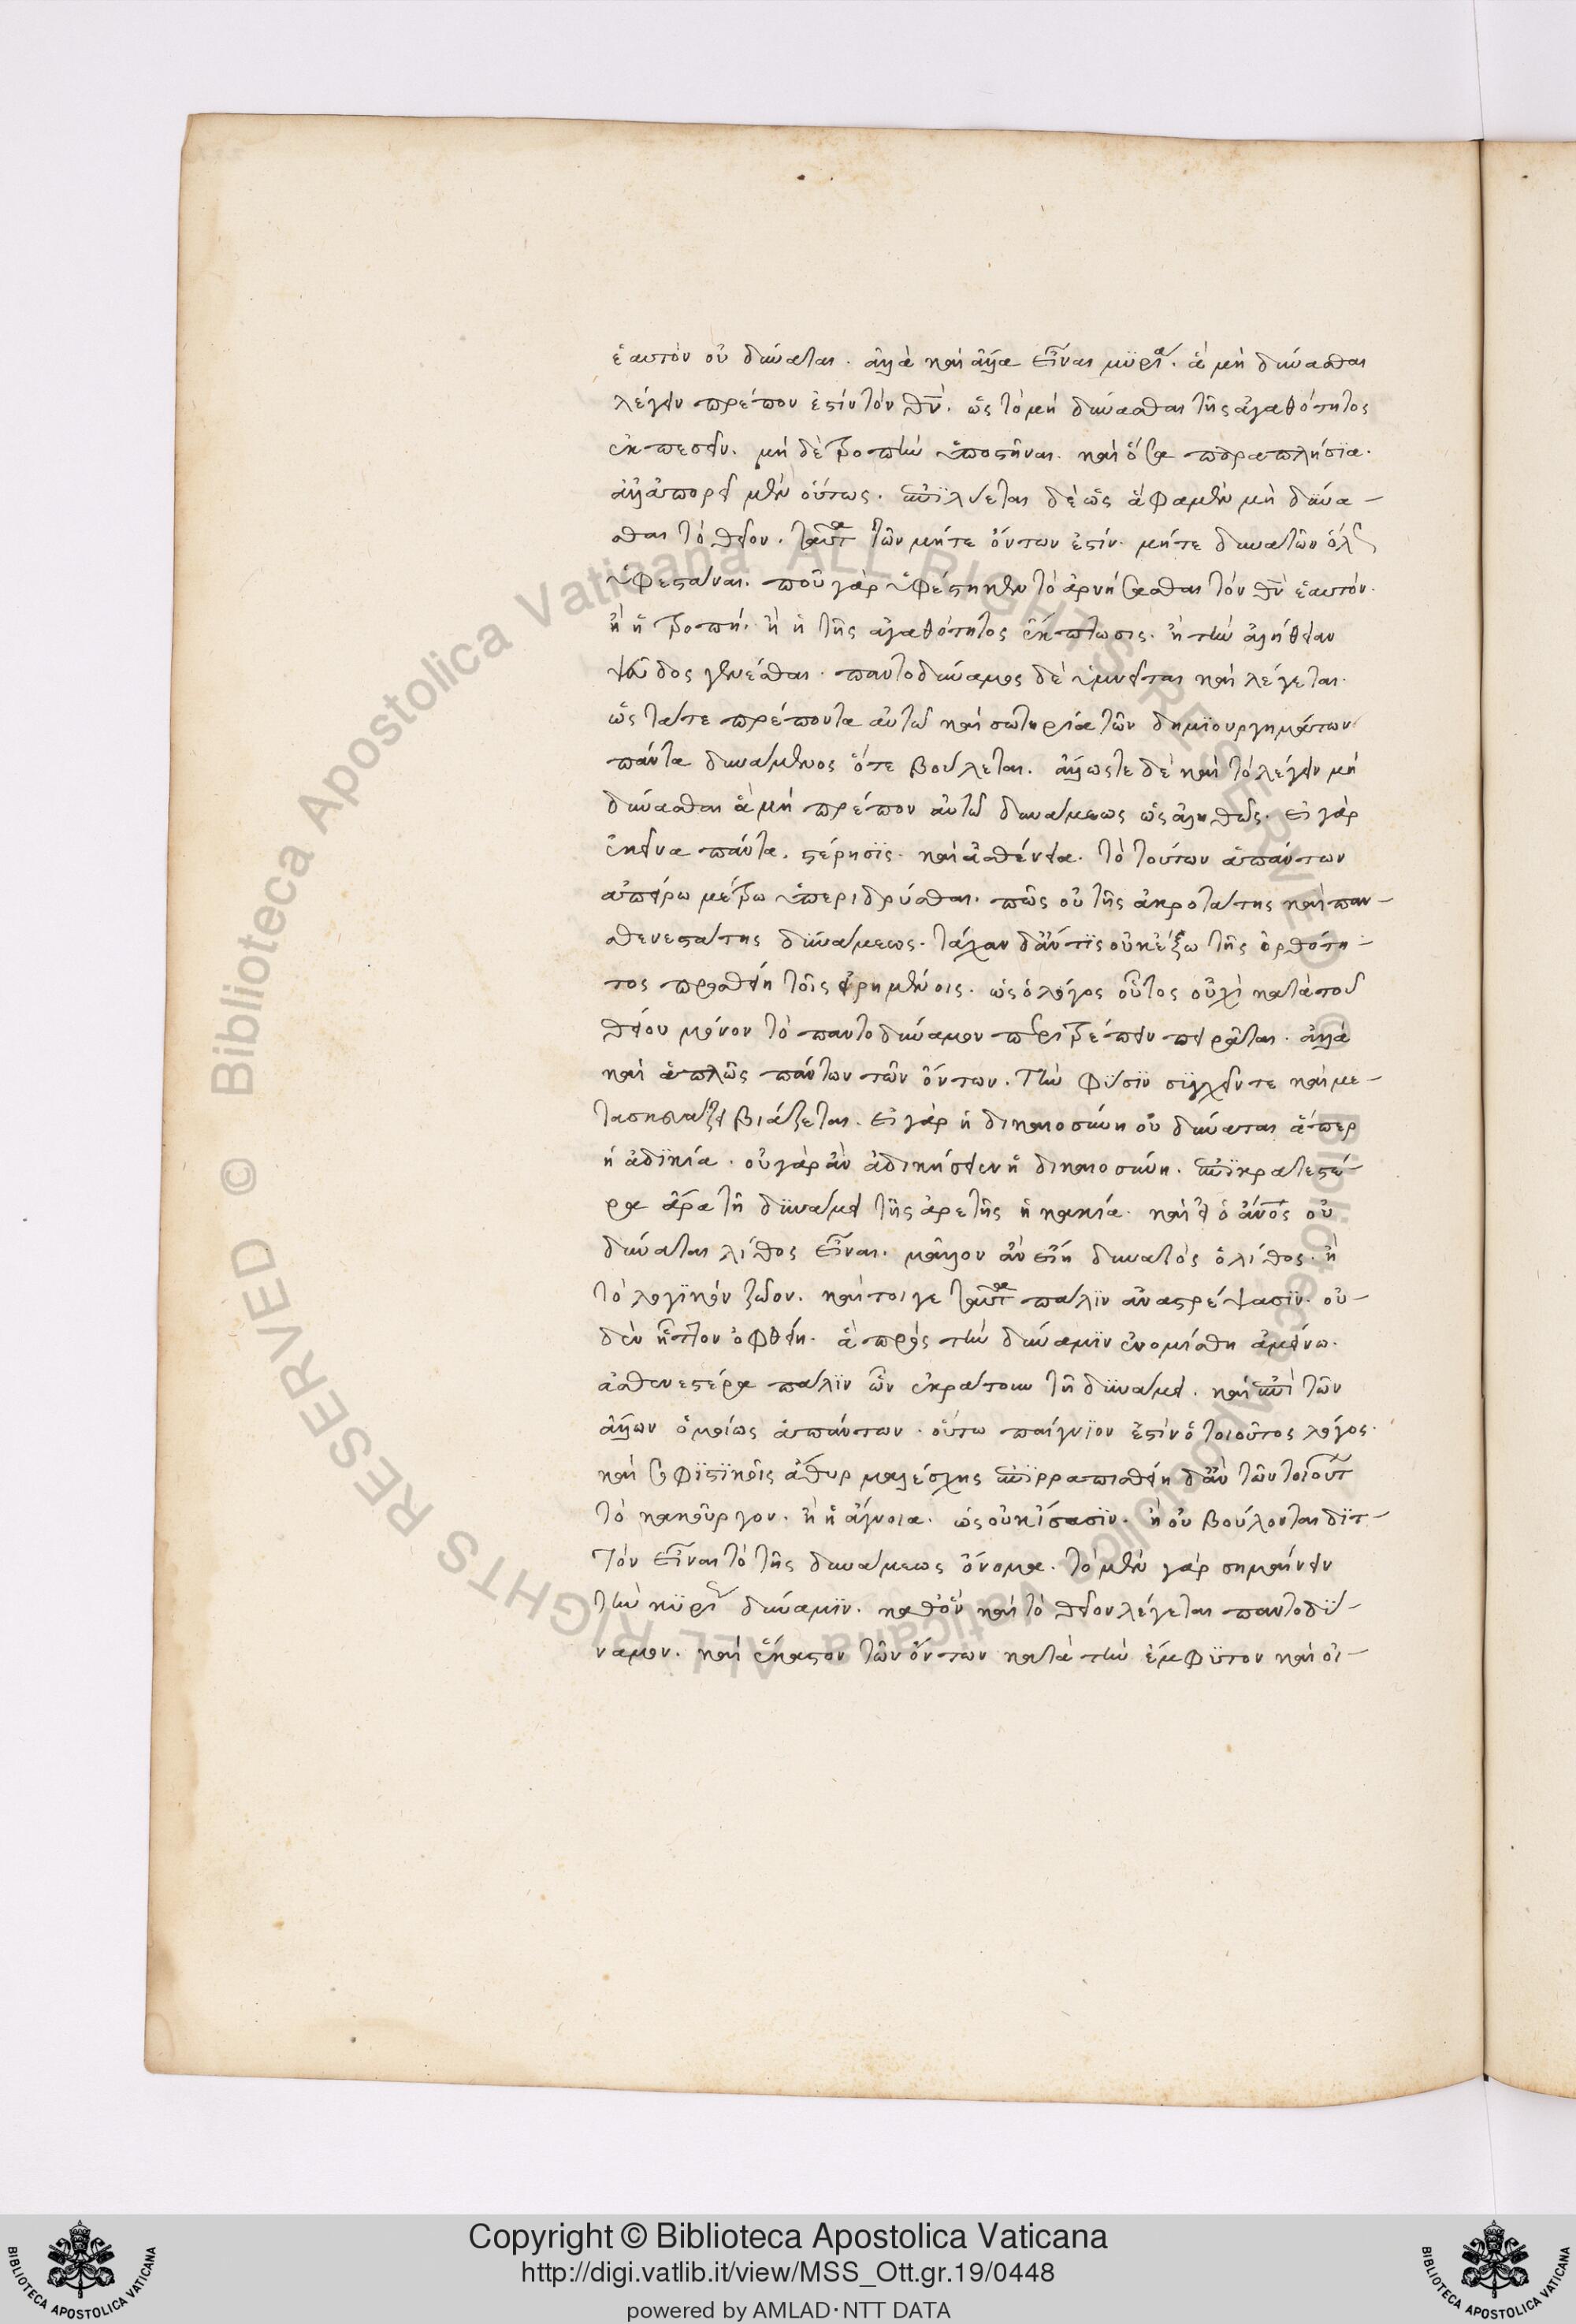 ἑαυτὸν οὐ δύναται. ἀλλὰ καὶ ἄλλα εἶναι μυρία. ἃ μὴ δύνασθαι
λέγειν πρέπον ἐστὶν τὸν θν̅. ὡς τὸ μὴ δύνασθαι τῆς ἀγαθότητος
ἐκπεσεῖν. μὴ δὲ τροπὴν ὑποστῆναι. καὶ ὅσα παραπλήσια.
ἀλλ' ἀπορεῖ μὲν οὕτως. ἐπιλύεται δὲ ὡς ἅ φαμεν μὴ δύνα-
σθαι τὸ θεῖον. ταῦτα τῶν μήτε ὄντων ἐστίν. μήτε δυνατῶν ὅλως
ὑφεστάναι. ποῦ γὰρ ὑφέστηκεν τὸ ἀρνήσασθαι τὸν θν̅ ἑαυτόν.
ἢ ἡ τροπή. ἢ ἡ τῆς ἀγαθότητος ἔκπτωσις. ἢ τὴν ἀλήθειαν
ψεῦδος γενέσθαι. παντοδύναμος δὲ ὑμνεῖται καὶ λέγεται.
ὡς τά τε πρέποντα αὐτῶ καὶ σωτήρια τῶν δημιουργημάτων
πάντα δυνάμενος ὅτε βούλεται. ἄλλως τε δὲ καὶ τὸ λέγειν μὴ
δύνασθαι ἃ μὴ πρέπον αὐτῶ δυνάμεως ὡς ἀληθῶς. εἰ γὰρ
ἐκεῖνα πάντα. στέρησις. καὶ ἀσθένεια. τὸ τούτων ἁπάντων
ἀπείρω μέτρω ὑπεριδρύσθαι. πῶς οὐ τῆς ἀκροτάτης καὶ παν-
σθενεστάτης δυνάμεως. τάχα ἂν δ' ἄν τις οὐκ ἔξω τῆς ὀρθότη-
τος προσθείη τοῖς εἰρημένοις. ὡς ὁ λόγος οὗτος οὐχὶ κατὰ τοῦ
θείου μόνον τὸ παντοδύναμον περιτρέπειν πειρᾶται. ἀλλὰ
καὶ ἁπλῶς πάντων τῶν ὄντων. τὴν φύσιν συγχεῖν τε καὶ με-
τασκευάζειν βιάζεται. εἰ γὰρ ἡ δικαιοσύνη οὐ δύναται ἅπερ
ἡ ἀδικία. οὐ γὰρ ἂν ἀδικήσειεν ἡ δικαιοσύνη. ἐπικρατεστέ-
ρα ἄρα τῆ δυνάμει τῆς ἀρετῆς ἡ κακία. καὶ εἰ ὁ ἄνο̅ς οὐ
δύναται λίθος εἶναι. μᾶλλον ἂν εἴη δυνατὸς ὁ λίθος. ἢ
τὸ λογικὸν ζῶον. καίτοι γε ταῦτα πάλιν ἀναστρέψασιν. οὐ-
δὲν ἧττον ὀφθείη. ἃ πρὸς τὴν δύναμιν ἐνομίσθη ἀμείνω.
ἀσθενέστερα πάλιν ὧν ἐκράτουν τῆ δυνάμει. καὶ ἐπὶ τῶν
ἄλλων ὁμοίως ἁπάντων. οὕτω παίγνιον ἐστὶν ὁ τοιοῦτος λόγος.
καὶ σοφιστικῆς ἄθυρμα λέσχης ἐπιρραπισθείη δ' ἂν τῶν τοιούτ
τὸ κακοῦργον. ἢ ἡ ἄγνοια. ὡς οὐκ ἴσασιν. ἢ οὐ βούλονται διτ-
τὸν εἶναι τὸ τῆς δυνάμεως ὄνομα. τὸ μὲν γὰρ σημαίνειν
τὴν κυρίως δύναμιν. καθ' ὃν καὶ τὸ θεῖον λέγεται παντοδύ-
ναμον. καὶ ἕκαστον τῶν ὄντων κατὰ τὴν ἔμφυτον καὶ οἰ-
Copyright © Biblioteca Apostolica Vaticana
http://digi.vatlib.it/view/MSS_Ott.gr.19/0448
powered by AMLAD·NTT DATA